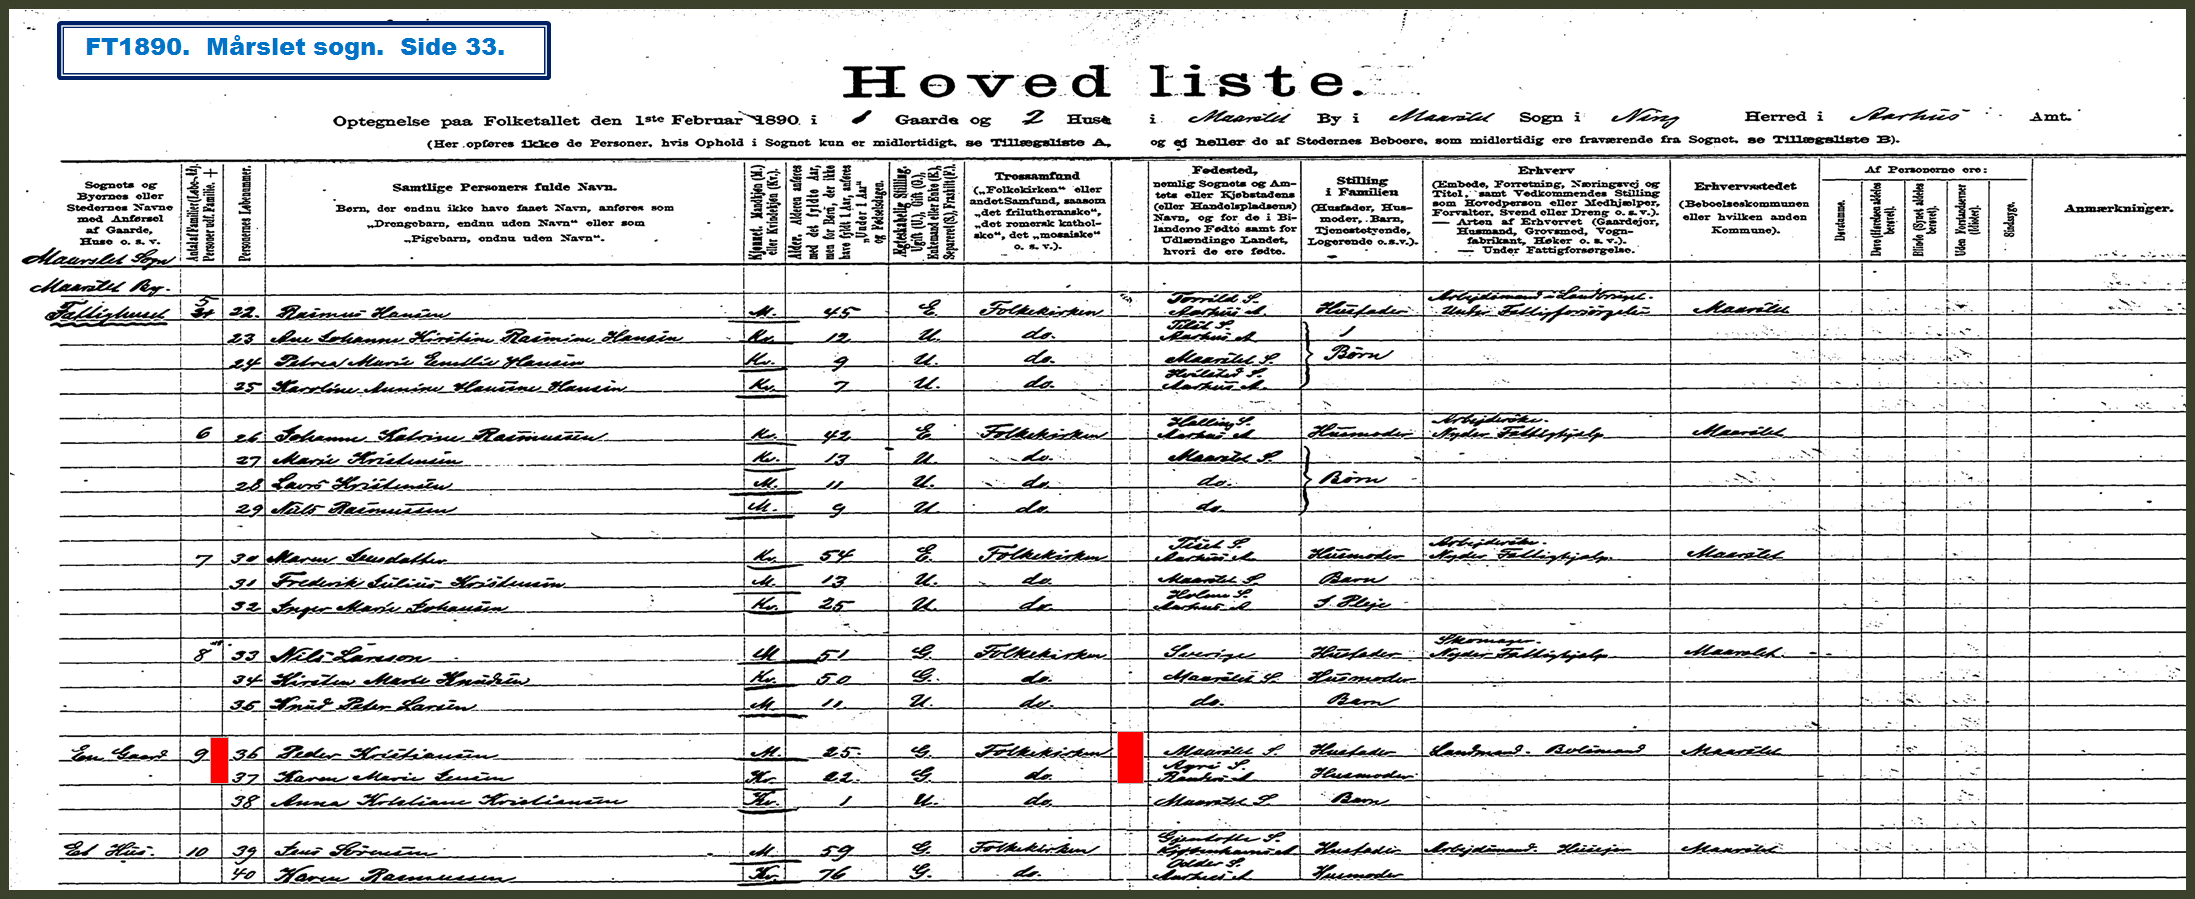 FT1890. Mårslet sogn. Side 33.
Hovedliste.
Optegnelse paa Folketallet den 1ste Februar 1890 i 1 Gaarde og 2 Huse i Maarslet By i Maarslet Sogn i Ning Herred i Aarhus Amt.
(Her opføres ikke de Personer, hvis Ophold i Sognet kun er midlertidigt, se Tillægsliste A, og ej heller de af Stedernes Beboere, som midlertidig ere fraværende fra Sognet, se Tillægsliste B).
Sognets og Byernes eller Stedernes Navne med Anførsel af Gaarde, Huse o. s. v.
Personernes Løbenummer.
Samtlige Personers fulde Navn.
Børn, der endnu ikke have faaet Navn, anføres som
„Drengebarn, endnu uden Navn" eller som
„Pigebarn, endnu uden Navn".
Kjønnet. Mandkjøn (M.) eller Kvindekjøn (Kv.).
Alder. Alderen anføres med det fyldte Aar, men for Børn, der ikke have fyldt 1 Aar, anføres „Under 1 Aar" og Fødselsdagen.
Ægteskabelig Stilling. Ugift (U.), Gift (G.), Enkemand eller Enke (E.), Separeret (S.), Fraskilt (F.).
Trossamfund („Folkekirken" eller andet Samfund, saasom „det frilutheranske", „det romersk katholske", det „mosaiske" o. s. v.).
Fødested, nemlig Sognets og Amtets eller Kjøbstadens (eller Handelspladsens) Navn, og for de i Bilandene Fødte samt for Udlændinge Landet, hvori de ere fødte.
Stilling i Familien (Husfader, Husmoder, Barn, Tjenestetyende, Logerende o.s.v.).
Erhverv (Embede, Forretning, Næringsvej og Titel, samt Vedkommendes Stilling som Hovedperson eller Medhjælper, Forvalter, Svend eller Dreng o. s. v.). — Arten af Erhvervet (Gaardejer, Husmand, Grovsmed, Vognfabrikant, Høker o. s. v.). — Under Fattigforsørgelse.
Erhvervsstedet (Beboelseskommunen eller hvilken anden Kommune).
Af Personerne ere:
Døvstumme.
Døve (Hørelsen aldeles berøvet).
Blinde (Synet aldeles berøvet).
Uden Forstandsevner (Idioter).
Sindssyge.
Anmærkninger.
Maarslet Sogn
Maarslet By.
Fattighuset 5 22. Rasmus Hansen M. 45 E. Folkekirken Torrild S. Aarhus A. Husfader Arbejdsmand i Landbruget. Under Fattigforsørgelse Maarslet
23 Ane Johanne Kirstine Rasmine Hansen Kv. 12 U. do. Tilst S. Aarhus A. Børn
24 Petrea Marie Emilie Hansen Kv. 9 U. do. Maarslet S.
25 Karoline Annine Hansine Hansen Kv. 7 U. do. Hvilsted S. Aarhus A.
6 26 Johanne Katrine Rasmussen Kv. 42 E. Folkekirken Halling S. Aarhus A. Husmoder Arbejderske. Nyder Fattighjælp Maarslet
27 Marie Kristensen Kv. 13 U. do. Maarslet S. Børn
28 Laurs Kristensen M. 11 U. do. do.
29 Niels Rasmussen M. 9 U. do. do.
7 30 Maren Jensdatter Kv. 54 E. Folkekirken Tiset S. Aarhus A. Husmoder Arbejderske. Nyder Fattighjælp Maarslet
31 Frederik Julius Kristensen M. 13 U. do. Maarslet S. Barn
32 Inger Marie Johansen Kv. 25 U. do. Holme S. Aarhus A. I Pleje
8 33 Nils Larsson M. 51 G. Folkekirken Sverige Husfader Skomager. Nyder Fattighjælp Maarslet.
34 Kirsten Marie Knudsen Kv. 50 G. do. Maarslet S. Husmoder
35 Knud Peter Larsen M. 11 U. do. do. Barn
Een Gaard 9 36 Peder Kristiansen M. 25 G. Folkekirken Maarslet S. Husfader Landmand. Bolsmand Maarslet
37 Karen Marie Jensen Kv. 22. G. do. Agri S. Randers A. Husmoder
38 Anna Kristiane Kristiansen Kv. 1 U. do. Maarslet S. Barn
Et Hus. 10 39 Jens Sørensen M. 59 G. Folkekirken Gjentofte S. Kjøbenhavns A. Husfader Arbejdsmand. Husejer Maarslet
40 Karen Rasmussen Kv. 76 G. do. Odder S. Aarhus A. Husmoder